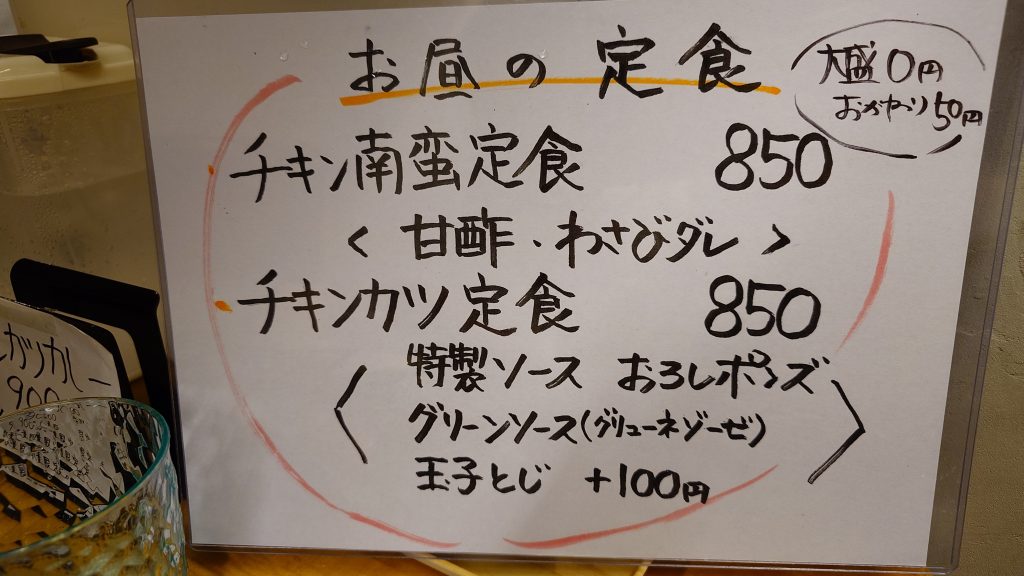 お昼の定食
大盛0円
おかわり50円
チキン南蛮定食 850
< 甘酢・わさびダレ >
チキンカツ定食 850
特製ソース おろしポンズ
グリーンソース(グリューネゾーゼ)
玉子とじ +100円
カツカレー
900